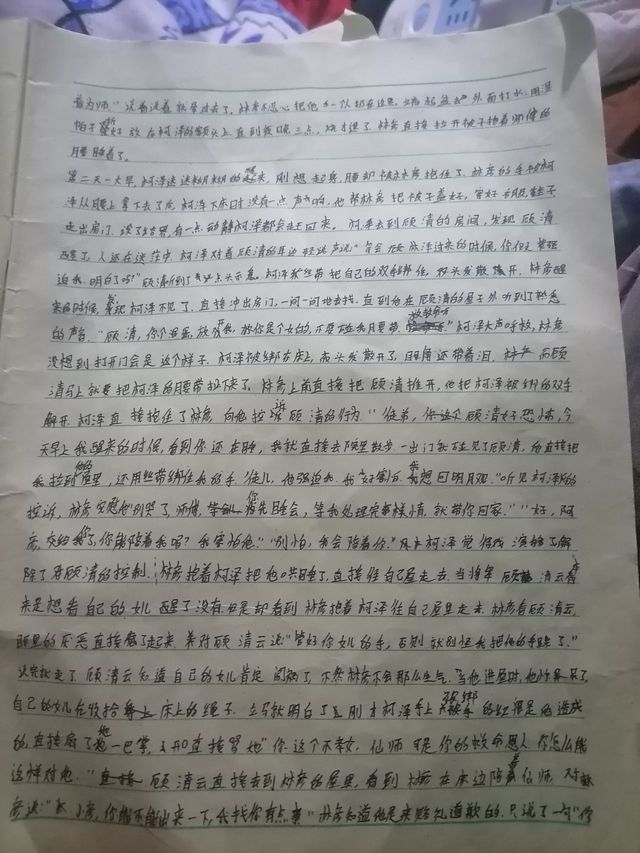 首为师。"说着说着就晕过去了,林彦不忍心把他一个人扔在这里,端起盆去外面打水,用湿
帕子敷好放在柯泽的额头上,直到夜晚三点,烧才退了。林彦直接拉开被子抱着师傅的
腰睡着了。
第二天一大早,柯泽迷迷糊糊的起来,刚想起身,腰却被林彦抱住了。林彦的手被柯
泽从腰上拿下去了后,柯泽下床时没有一点声响,他帮林彦把被子盖好,穿好衣服,鞋子
走出房门,没了结界,有一点动静柯泽都会走回来。柯泽去到顾清的房间,发现顾清
醒了,人还在迷茫中,柯泽对着顾清的耳边轻说声说"等会林彦过来的时候,你假装强
迫我,明白了吗?"顾清听到了点头示意。柯泽丝带把自己的双手绑住,头发散开。林彦醒
来的时候,发现柯泽不见了,直接冲出房门,一间一间地去找,直到他在顾清的屋子外听到了熟悉
的声音。"顾清,你个混蛋,放开我,救你是个女的,不要碰我月要带,救救命"柯泽大声呼救,林彦
没想到打开门会是这个样子,柯泽被绑在床上,而头发散开了,眼角还带着泪,林彦而顾
清马上就要把柯泽的腰带扒下来了,林彦上前直接把顾清推开,他把柯泽被绑的双手
解开,柯泽直接抱住了林彦,向他控诉顾清的行为"徒弟,你这个顾清好恐怖,今
天早上我醒来的时候,看到你还在睡,我就直接去院里散步,一出门我碰见了顾清,他直接把
我拉到他的屋里,还用丝带绑住我的手,徒儿,他强迫我,我好害怕,我想回明月观。"听见柯泽的
控诉,林彦安慰他"别哭了,师傅,你先睡会,等我处理完事情,就带你回家。""好,阿
彦,交给你了,你能陪着我吗?我害怕他。""别怕,我会陪着你。"柯泽觉得戏演够了,解
除了对顾清的控制。林彦抱着柯泽把他哄睡了,直接往自己屋走去,当将军顾清云本
来是想看自己的女儿醒了没有,但是却看到林彦抱着柯泽往自己屋里走来,林彦看顾清云,
眼里的厌恶直接怒了起来,并对顾清云说"管好你女儿的手,否则就别怪我把他的手跺了。"
说完就走了,顾清云知道自己的女儿肯定闯祸了,不然林彦不会那么生气。当他进屋时,他
自己的女儿在收拾床上的绳子,立马就明白了,刚才柯泽手上被绑的红痕是他造成
的,直接扇了她一巴掌,开口直接骂她"你这个不孝女,仙师可是你的救命恩人,你怎么能
这样对他。"顾清云直接走到林彦的屋里,看到林彦在床边陪着仙师,对林
彦说:"小彦,你能不能出来一下,我找你有点事"林彦知道他是来赔礼道歉的,只说了一句"你